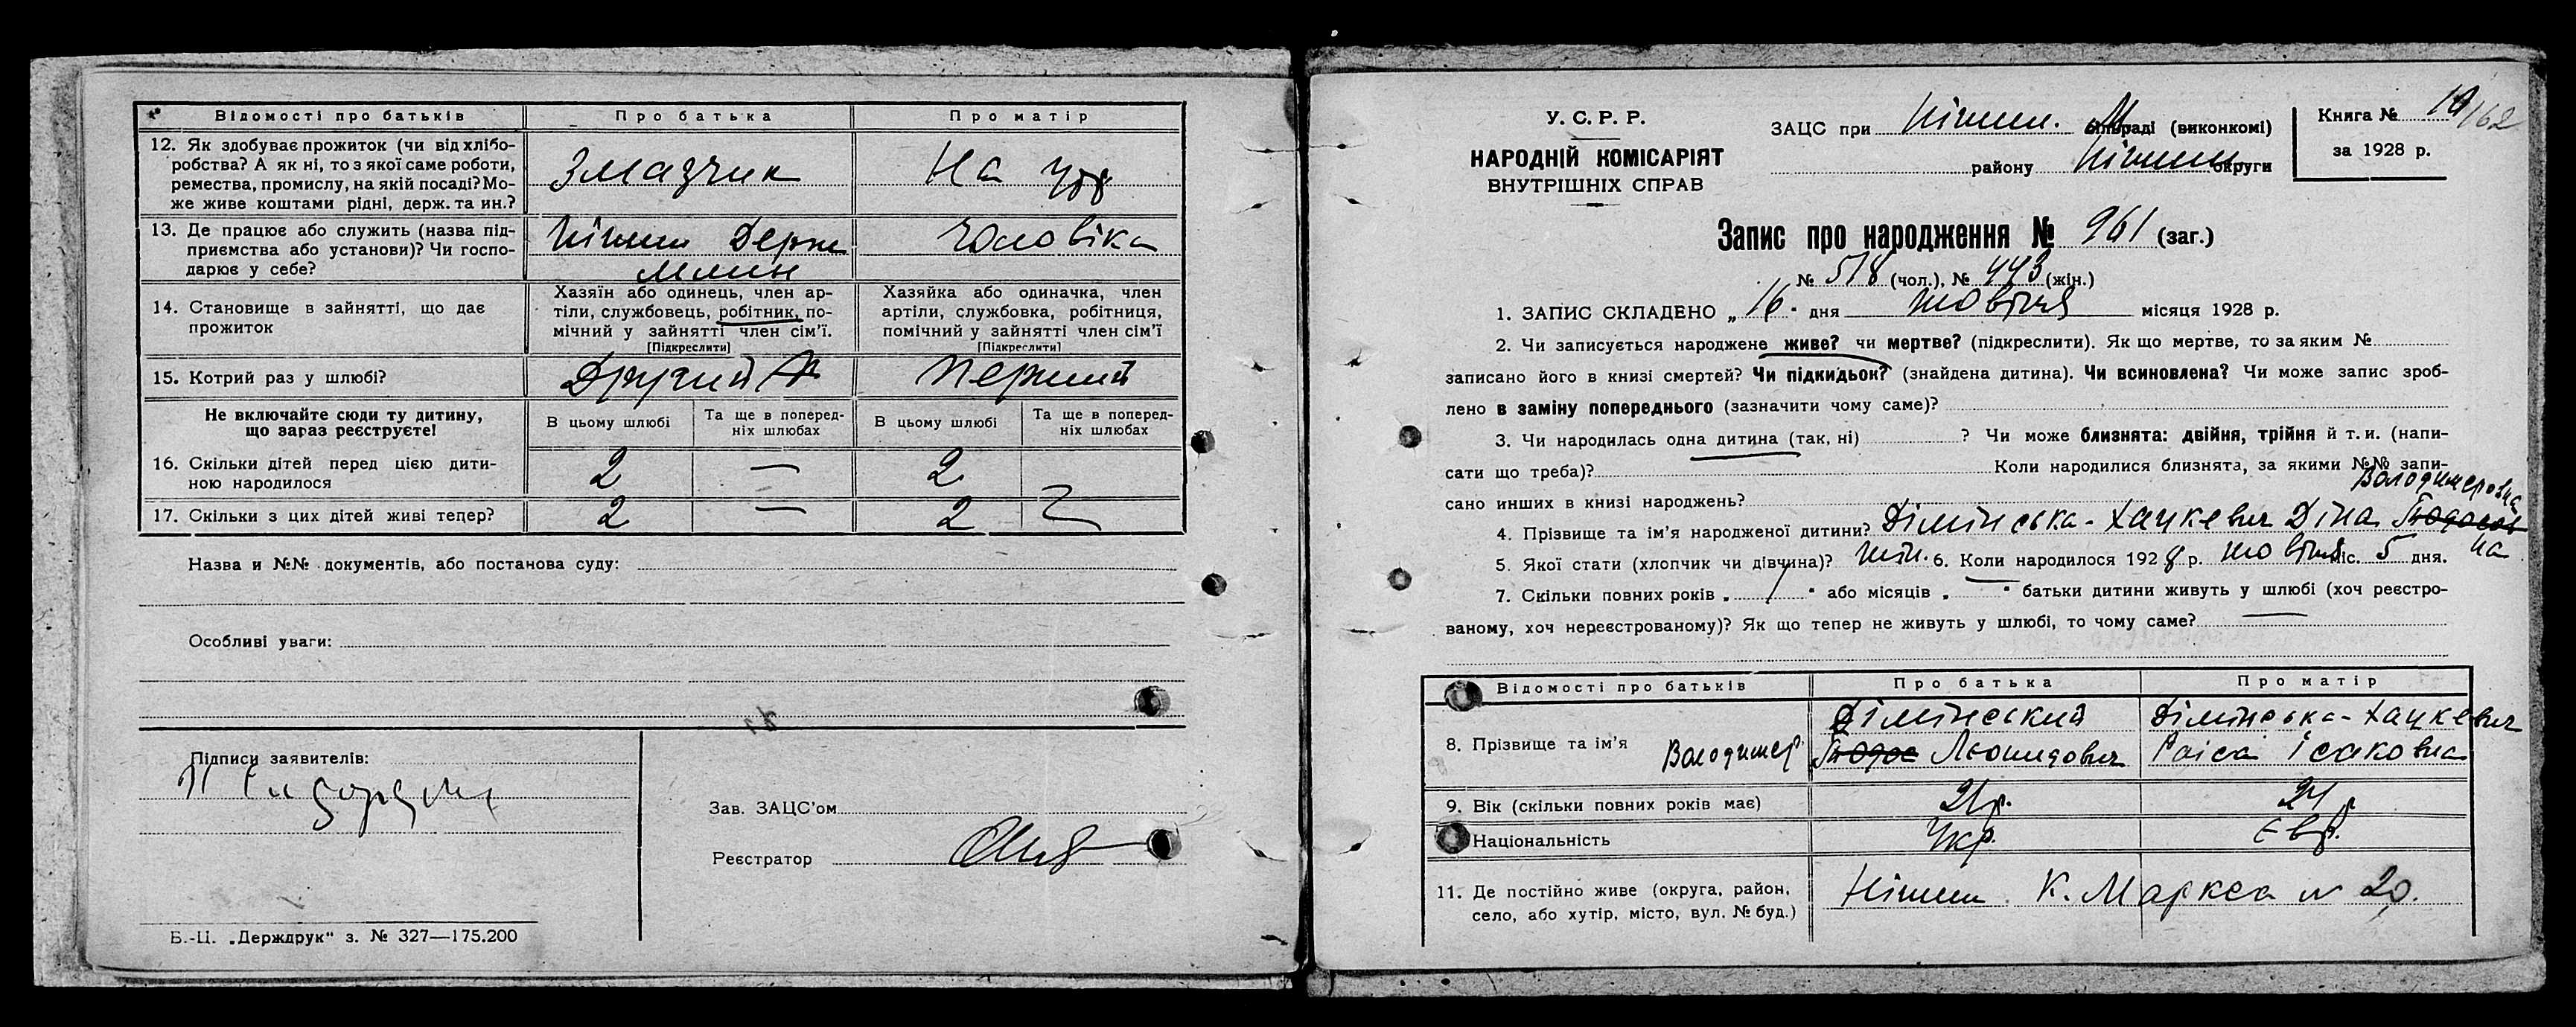 Відомості про батьків Про батька Про матір
12. Як здобуває прожиток (чи від хлібо-
робства? А як ні, то з якої саме роботи,
ремества, промислу, на якій посаді? Мо-
же живе коштами рідні, держ. та ин.?
Змазчик На утр
13. Де працює або служить (назва під-
приємства або установи)? Чи госпо-
дарює у себе?
Ніжин Держ чоловіка
млин
14. Становище в зайнятті, що дає
прожиток
Хазяїн або одинець, член ар-
тіли, службовець, робітник, по-
мічний у зайнятті член сім'ї.
[Підкреслити]
Хазяйка або одиначка, член
артіли, службовка, робітниця,
помічний у зайнятті член сім'ї
[Підкреслити]
15. Котрий раз у шлюбі? Другий Перший
Не включайте сюди ту дитину,
що зараз реєструєте!
В цьому шлюбі
Та ще в поперед-
ніх шлюбах
В цьому шлюбі
Та ще в поперед-
ніх шлюбах
16. Скільки дітей перед цією дити-
ною народилося
2 — 2
17. Скільки з цих дітей живі тепер? 2 — 2
Назва и №№ документів, або постанова суду:
Особливі уваги:
Підписи заявителів:
Зав. ЗАЦС'ом
Реєстратор
Б.-Ц. „Держдрук" з. № 327—175.200
У. С. Р. Р.
НАРОДНІЙ КОМІСАРІЯТ
ВНУТРІШНІХ СПРАВ
ЗАЦС при Ніжин. М сільраді (виконкомі)
району Ніжин округи
Книга № 10/162
за 1928 р.
Запис про народження № 961 (заг.)
№ 518 (чол.), № 443 (жін.)
1. ЗАПИС СКЛАДЕНО „16" дня жовтня місяця 1928 р.
2. Чи записується народжене живе? чи мертве? (підкреслити). Як що мертве, то за яким №
записано його в книзі смертей? Чи підкидьок? (знайдена дитина). Чи всиновлена? Чи може запис зроб-
лено в заміну попереднього (зазначити чому саме)?
3. Чи народилась одна дитина (так, ні) ? Чи може близнята: двійня, трійня й т. и. (напи-
сати що треба)? Коли народилися близнята, за якими №№ запи-
сано инших в книзі народжень?
Володимеровна
4. Прізвище та ім'я народженої дитини? Дімінська-Хацкевич Діна
5. Якої стати (хлопчик чи дівчина)? жін. 6. Коли народилося 1928 р. жовтня міс. 5 дня.
7. Скільки повних років „ / " або місяців „ — " батьки дитини живуть у шлюбі (хоч реєстро-
ваному, хоч нереєстрованому)? Як що тепер не живуть у шлюбі, то чому саме? —
Відомості про батьків Про батька Про матір
Дімінський Дімінська-Хацкевич
8. Прізвище та ім'я Володимер Леонидович Раіса Ісаковна
9. Вік (скільки повних років має) 21 р. 24 р
Національність Укр. Євр.
11. Де постійно живе (округа, район,
село, або хутір, місто, вул. № буд.)
Ніжин К. Маркса № 20.